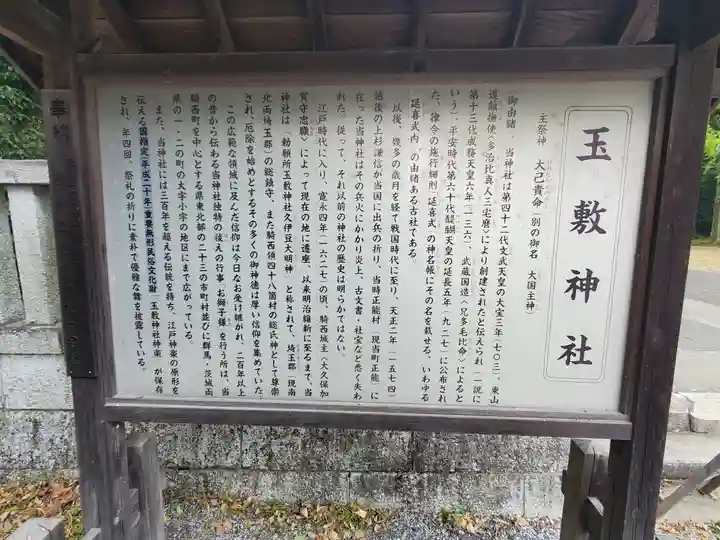 玉敷神社
主祭神　大己貴命（別の御名　大国主神）
御由緒　当神社は第四十二代文武天皇の大宝三年（七〇三）、東山
道鎮撫使〈多治比真人三宅麿〉により創建されたと伝えられ（一説に
第十三代成務天皇六年（一三六）、武蔵国造〈兄多毛比命〉によると
いう）、平安時代第六十代醍醐天皇の延長五年（九二七）に公布され
た、律令の施行細則「延喜式」の神名帳にその名を載せる、いわゆる
「延喜式内」の由緒ある古社である。
以後、幾多の歳月を経て戦国時代に至り、天正二年（一五七四）
越後の上杉謙信が当国に出兵の折り、当時正能村（現当町正能）に
在った当神社はその兵火にかかり炎上、古文書・社宝など悉く失わ
れた。従って、それ以前の神社の歴史は明らかではない。
江戸時代に入り、寛永四年（一六二七）の頃、騎西城主〈大久保加
賀守忠職〉によって現在の地に遷座、以来明治維新に至るまで、当
神社は「勅願所玉敷神社久伊豆大明神」と称されて、埼玉郡（現南
北両埼玉郡）の総鎮守、また騎西領四十八箇村の総氏神として尊崇
され、厄除を始めとするその多くの御神徳は厚い信仰を集めていた。
この広範な領域に及んだ信仰は今日なお受け継がれ、二百年以上
の昔から伝わる当神社独特の祓えの行事「お獅子様」を行う所は、当
騎西町を中心とする県東北部の二十三の市町村並びに群馬・茨城両
県の一・二の町の大字小字の地区にまで広がっている。
また、当神社には三百年を超える伝統を持ち、江戸神楽の原形を
伝える国指定（平成二十年）重要無形民俗文化財「玉敷神社神楽」が保存
され、年四回、祭礼の折りに素朴で優雅な舞を披露している。
奉納